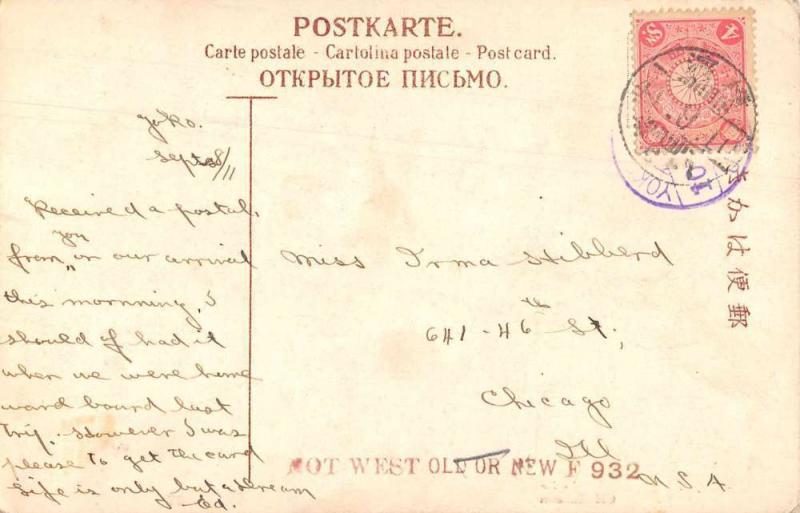 POSTKARTE.
Carte postale - Cartolina postale - Post card.
ОТКРЫТОЕ ПИСЬМО.
郵便はがき
4 Sn
YOK
10
Yoko.
Sept 8/11
Received a postal,
from you on our arrival
this mornning, I
should of had it
when we were home
ward bound last
trip. However I was
please to get the card
Life is only but a dream
Ed.
Miss Irma Hibberd
641 - 46 th St,
Chicago
Ill
U.S.A.
NOT WEST OLD OR NEW F 932